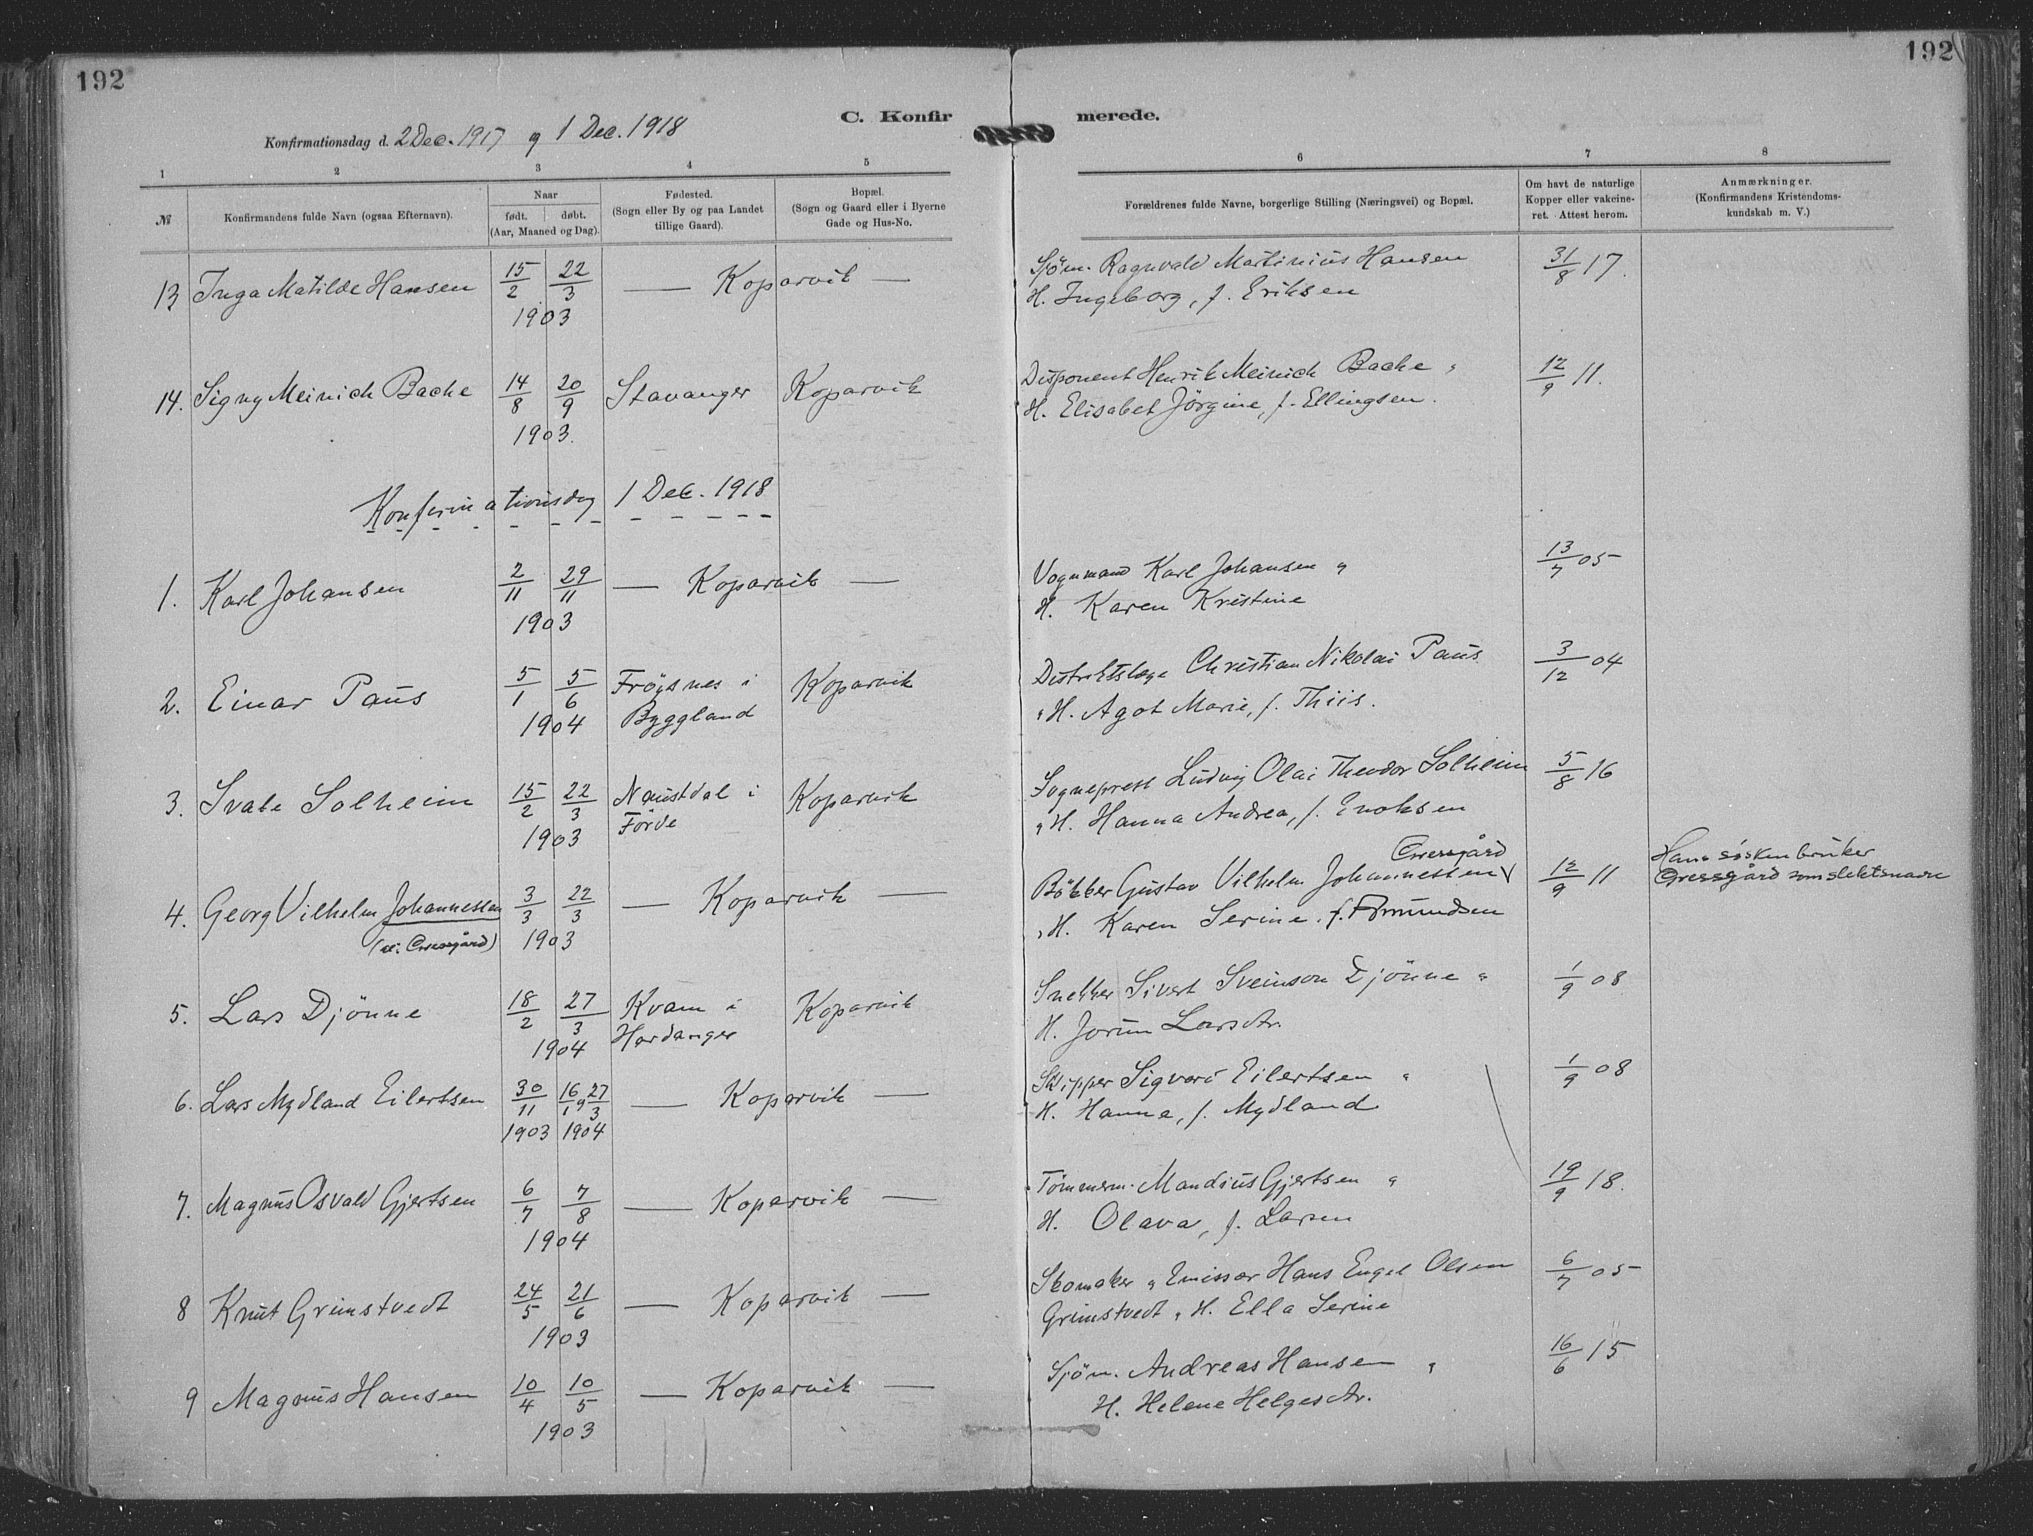 192
192
C. Konfir merede.
Konfirmationsdag d. 2 Dec. 1917 og 1 Dec. 1918
1 2 3 4 5 6 7 8
№
Konfirmandens fulde Navn (ogsaa Efternavn).
Naar
født. døbt.
(Aar, Maaned og Dag).
Fødested.
(Sogn eller By og paa Landet
tillige Gaard).
Bopæl.
(Sogn og Gaard eller i Byerne
Gade og Hus-No.
Forældrenes fulde Navne, borgerlige Stilling (Næringsvei) og Bopæl.
Om havt de naturlige
Kopper eller vakcine-
ret. Attest herom.
Anmærkninger.
(Konfirmandens Kristendoms-
kundskab m. V.)
13 Inga Matilde Hansen 15/2 22/3 — Koparvik — Sjøm. Ragnvald Martinius Hansen 31/8 17.
1903 H. Ingeborg, f. Eriksen
14. Signy Meinich Bache 14/8 20/9 Stavanger Koparvik Disponent Henrik Meinich Bache " 12/9 11.
1903. H. Elisabet Jörgine, f. Ellingsen.
Konfirmationsdag 1 Dec. 1918
1. Karl Johansen 2/11 29/11 — Koparvik — Vognmand Karl Johansen " 13/7 05
1903 H. Karen Kristine
2. Einar Paus 5/1 5/6 Frøysnes i Koparvik Distriktslæge Christian Nikolai Paus 3/12 04
1904 Byggland " H. Agot Marie, f. Thiis.
3. Svale Solheim 15/2 22/3 Naustdal i Koparvik Sogneprest Ludvig Olai Theodor Solheim 5/8 16
1903 Förde " H. Hanna Andrea, f. Enoksen
4. Georg Vilhelm Johannessen 3/3 22/3 — Koparvik — Bökker Gustav Vilhelm Johannessen Orresgård 12/9 11 Hans søsken bruker
1903 " H. Karen Serine, f. Amundsen Orresgård som slektsnavn
5. Lars Djönne 18/2 27/3 Kvam i Koparvik Snekker Sivert Sveinson Djönne " 1/9 08
1904 Hardanger H. Jorun Larsdtr.
6. Lars Mydland Eilertsen 30/11 16/1 og 27/3 — Koparvik — Skipper Sigvard Eilertsen " 1/9 08
1903 1904 H. Hanna, f. Mydland
7. Magnus Osvald Gjertsen 6/7 7/8 — Koparvik — Tömmerm. Mandius Gjertsen " 19/9 18.
1904 H. Olava, f. Larsen
8 Knut Grimstvedt 24/5 21/6 — Koparvik — Skomaker " Emissær Hans Engel Olsen 6/7 05
1903 Grimstvedt " H. Ella Serine
9 Magnus Hansen 10/4 10/5 — Koparvik — Sjöm. Andreas Hansen " 16/6 15
1903 H. Helene Helgesdtr.